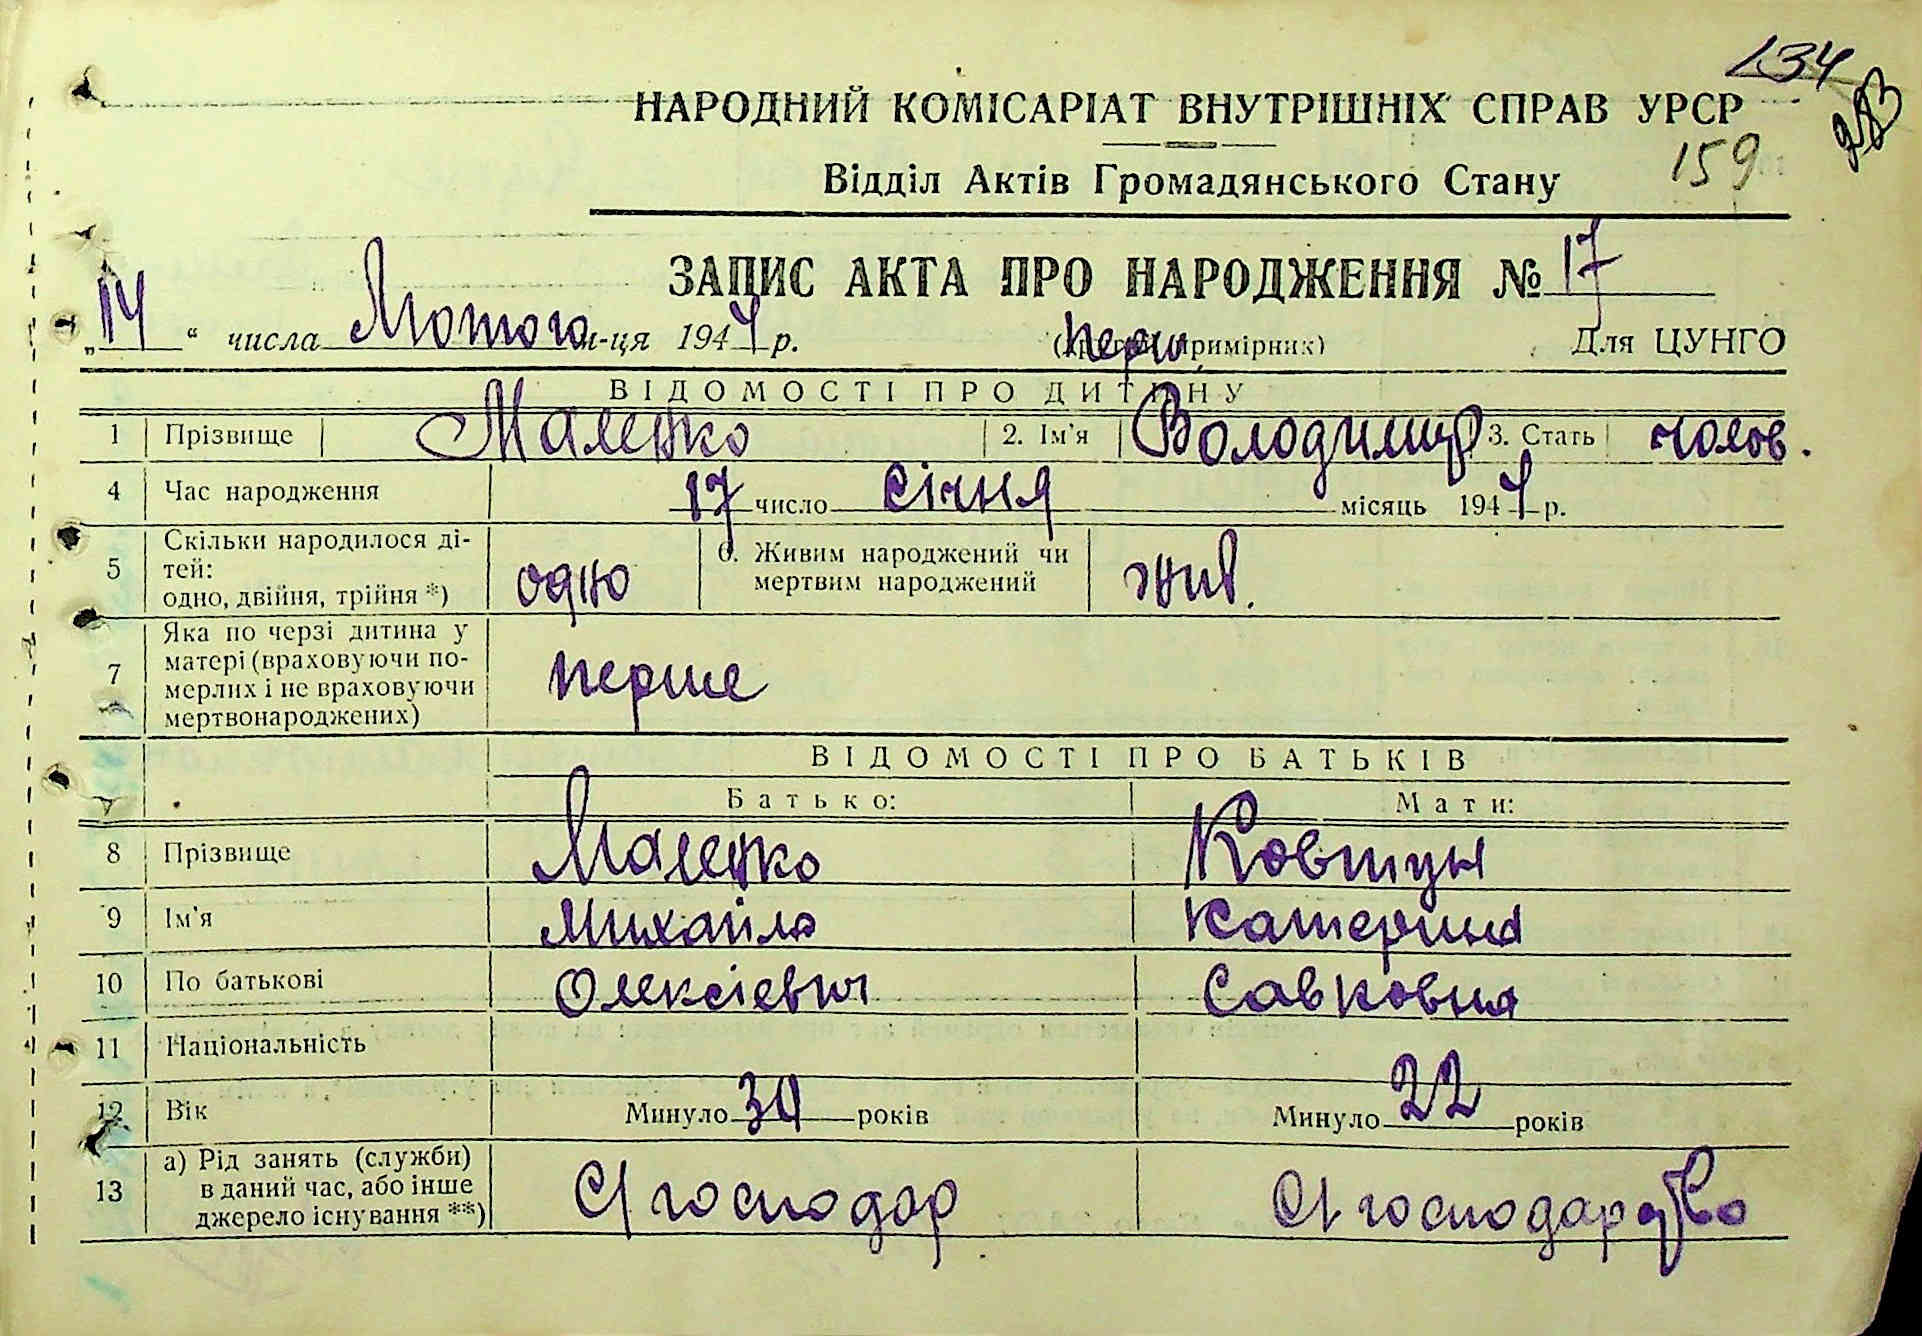 134
283
НАРОДНИЙ КОМІСАРІАТ ВНУТРІШНІХ СПРАВ УРСР
159
Відділ Актів Громадянського Стану
ЗАПИС АКТА ПРО НАРОДЖЕННЯ № 17
„14“ числа Лютого м-ця 1944 р. (перш примірник) Для ЦУНГО
ВІДОМОСТІ ПРО ДИТИНУ
1 Прізвище Маленко 2. Ім'я Володимир 3. Стать чолов.
4 Час народження 17 число січня місяць 1944 р.
5 Скільки народилося дітей: одно, двійня, трійня *) одно 6. Живим народжений чи мертвим народжений жив.
7 Яка по черзі дитина у матері (враховуючи померлих і не враховуючи мертвонароджених) перше
ВІДОМОСТІ ПРО БАТЬКІВ
Батько: Мати:
8 Прізвище Маленко Ковтун
9 Ім'я Михайло Катерина
10 По батькові Олексієвич Савковна
11 Національність
12 Вік Минуло 30 років Минуло 22 років
13 а) Рід занять (служби) в даний час, або інше джерело існування **) С/господар С/господарство